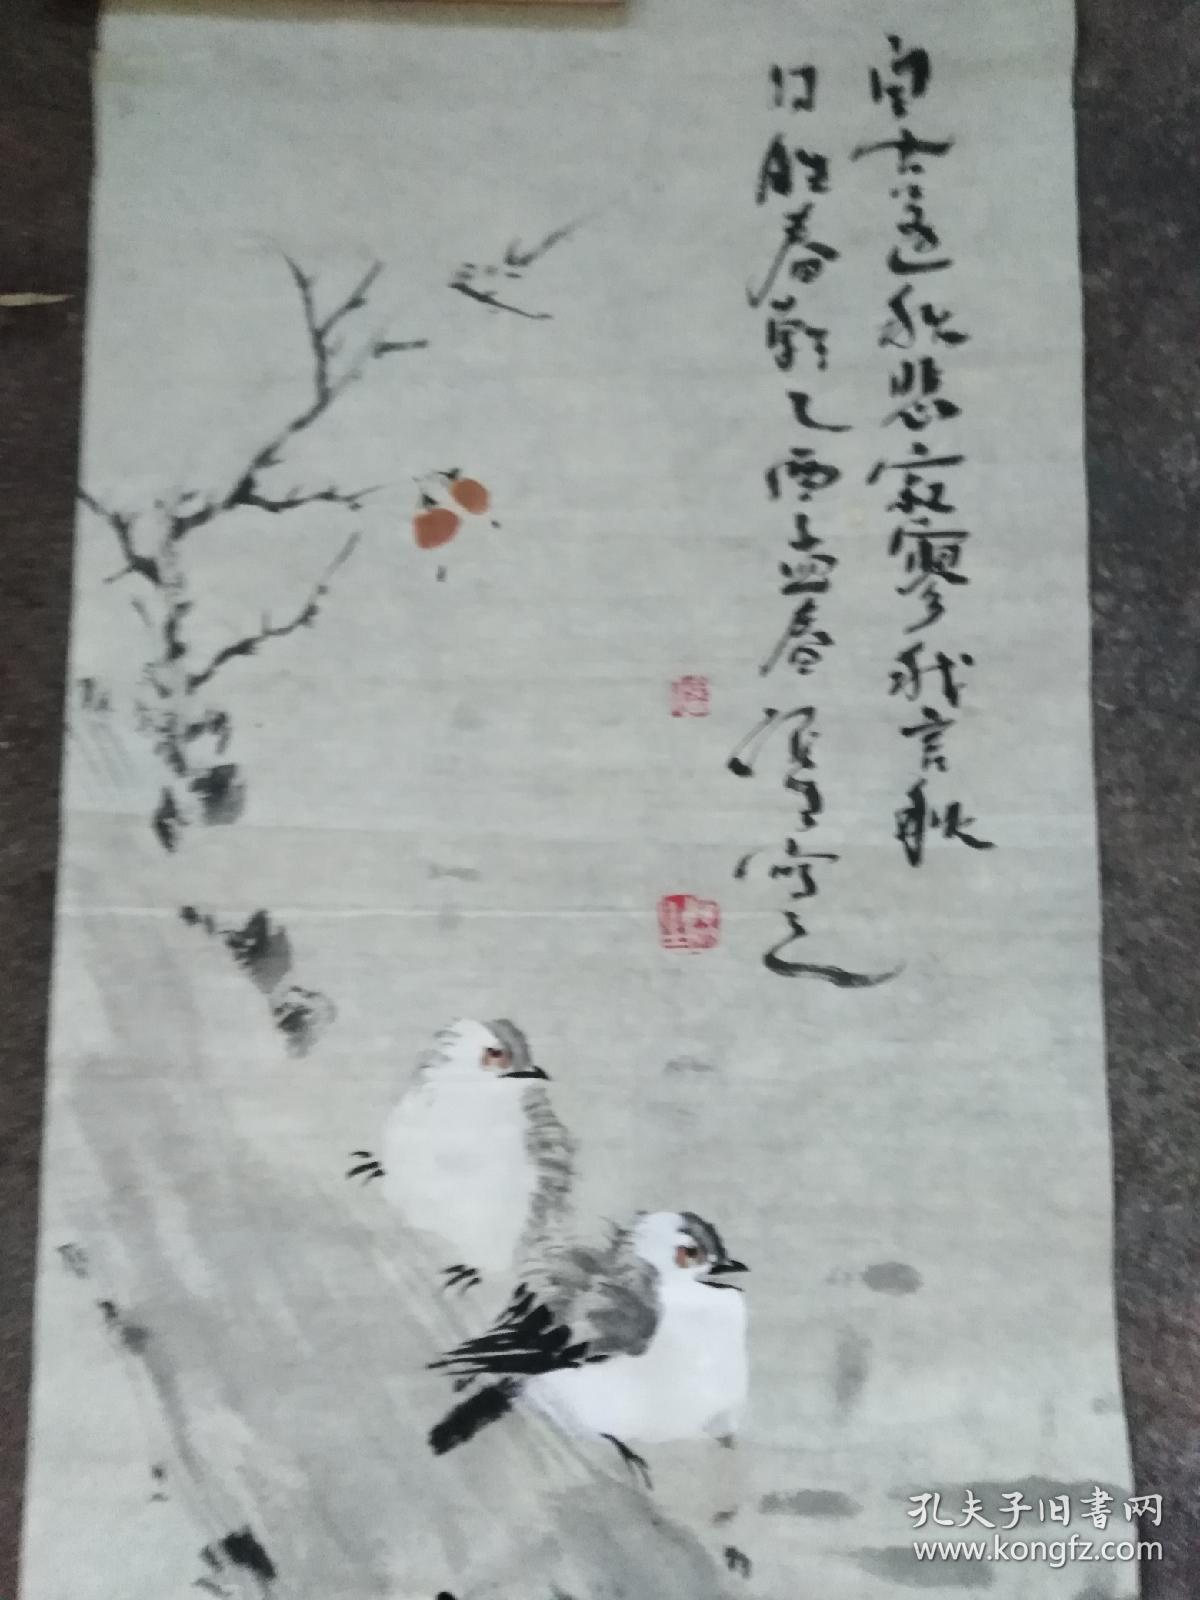 自古逢秋悲寂寥我言秋
日胜春朝乙酉孟春
写之
孔夫子旧书网
www.kongfz.com